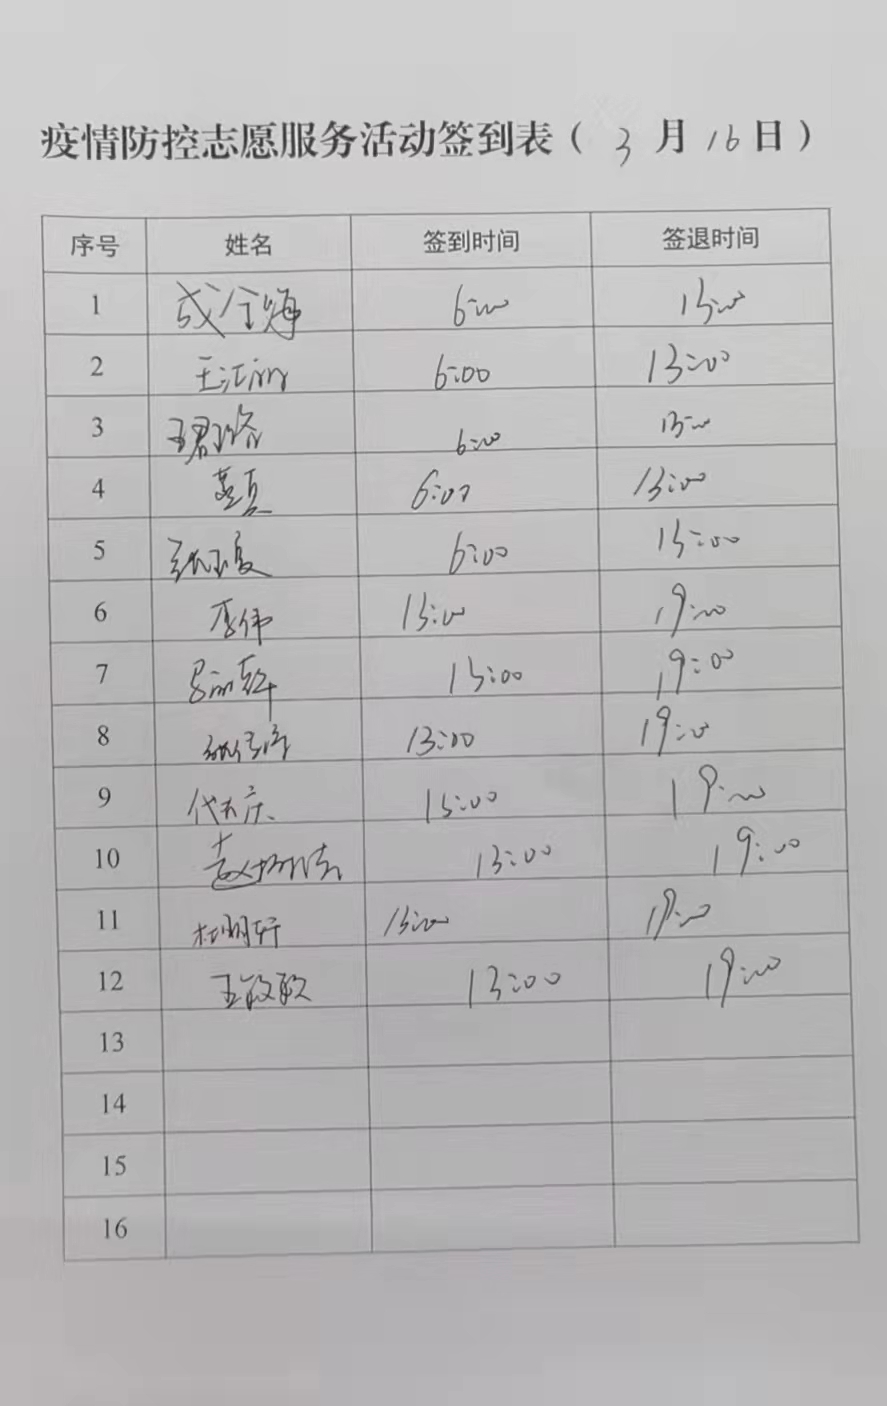 疫情防控志愿服务活动签到表（3月16日）
序号 姓名 签到时间 签退时间
1 6:00 13:00
2 6:00 13:00
3 王君璐 6:00 13:00
4 6:00 13:00
5 6:00 13:00
6 李伟 13:00 19:00
7 13:00 19:00
8 13:00 19:00
9 13:00 19:00
10 13:00 19:00
11 杜明轩 13:00 19:00
12 13:00 19:00
13
14
15
16